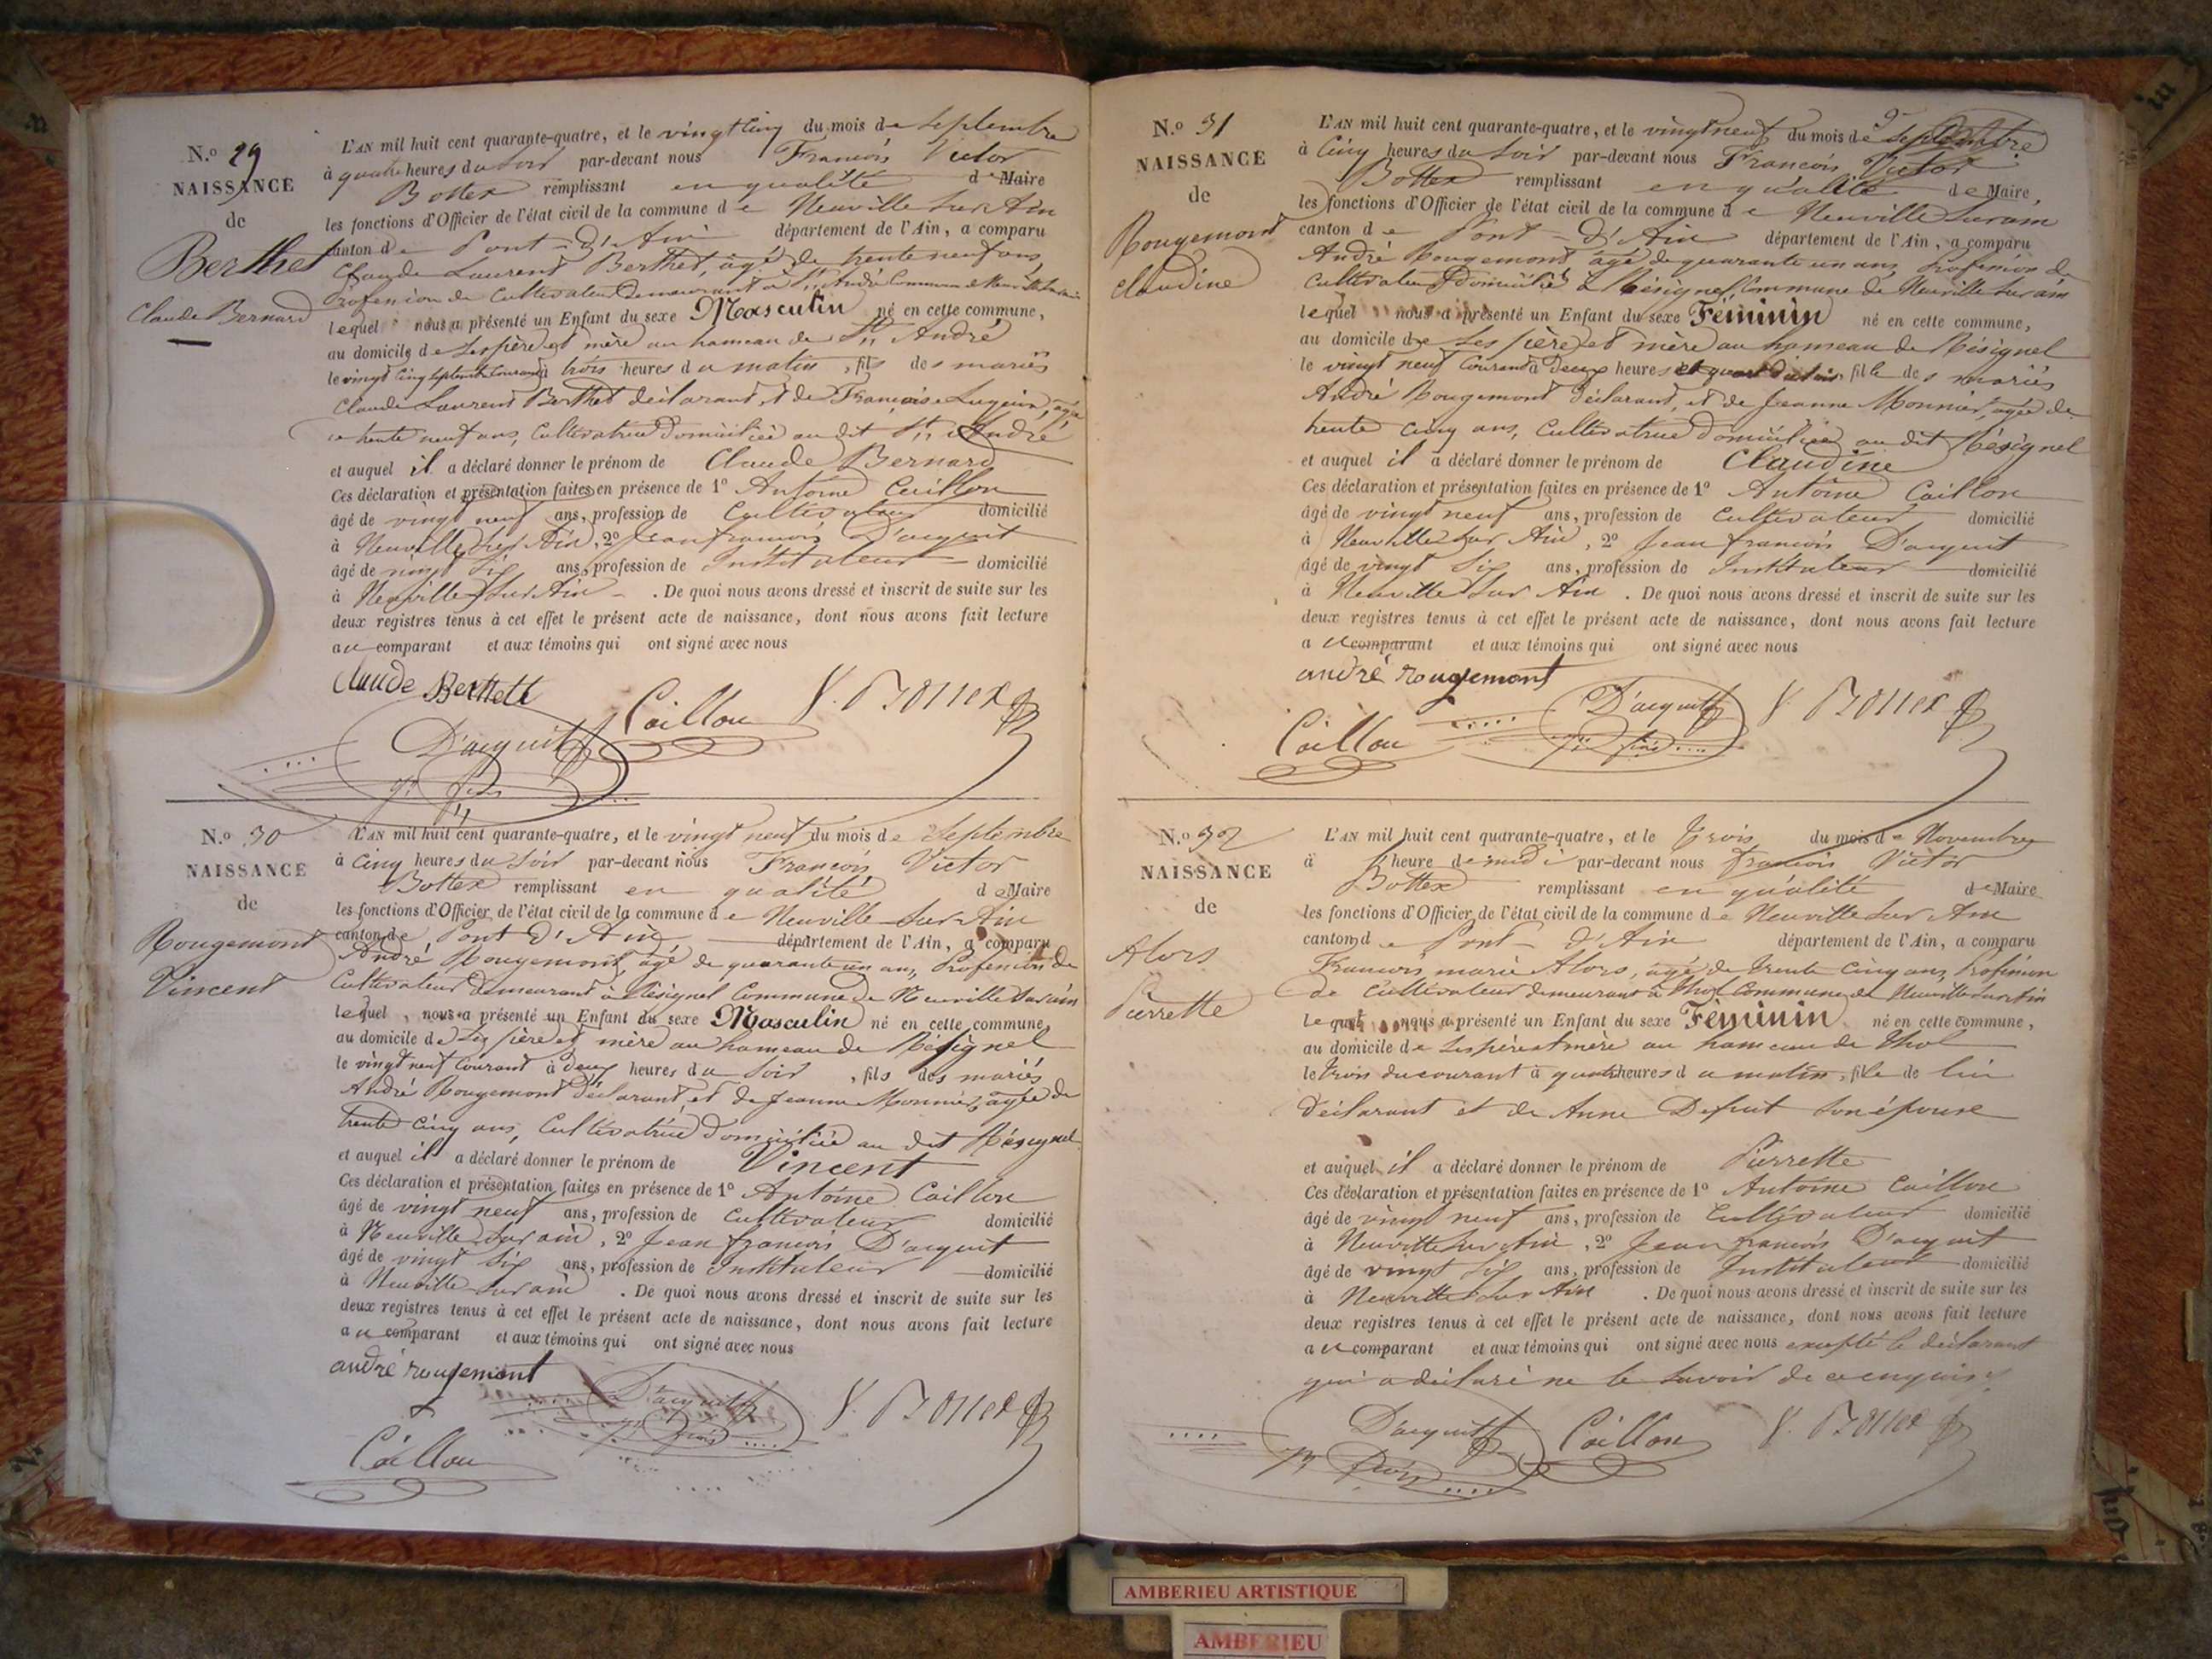 N.o 29
NAISSANCE
de
Berthet
Claude Bernard
L'AN mil huit cent quarante-quatre, et le vingt cinq du mois de Septembre
à quatre heures du Soir par-devant nous François Victor
Bottex remplissant en qualité de Maire
les fonctions d'Officier de l'état civil de la commune de Neuville sur Ain
canton de Pont-d'Ain département de l'Ain, a comparu
Claude Laurent Berthet, âgé de trente neuf ans,
Profession de Cultivateur demeurant à St André Commune de Neuville
lequel nous a présenté un Enfant du sexe Masculin né en cette commune,
au domicile de ses père et mère au hameau de St André
le vingt cinq septembre courant à trois heures du matin, fils des mariés
Claude Laurent Berthet déclarant et de Françoise
trente neuf ans, Cultivatrice domiciliée au dit St André
et auquel il a déclaré donner le prénom de Claude Bernard
Ces déclaration et présentation faites en présence de 1º Antoine Caillon
âgé de vingt neuf ans, profession de Cultivateur domicilié
à Neuville sur Ain, 2º Jean françois D'acquit
âgé de vingt Six ans, profession de Instituteur domicilié
à Neuville sur Ain. De quoi nous avons dressé et inscrit de suite sur les
deux registres tenus à cet effet le présent acte de naissance, dont nous avons fait lecture
au comparant et aux témoins qui ont signé avec nous
Claude Berthett
D'acquit Caillon V. Bottex
N.o 30
NAISSANCE
de
Rougemont
Vincent
L'AN mil huit cent quarante-quatre, et le vingt neuf du mois de Septembre
à cinq heures du Soir par-devant nous François Victor
Bottex remplissant en qualité de Maire
les fonctions d'Officier de l'état civil de la commune de Neuville sur Ain
canton de Pont d'Ain département de l'Ain, a comparu
André Rougemont, âgé de quarante un ans, Profession de
Cultivateur demeurant à Résignel Commune de Neuville sur ain
lequel nous a présenté un Enfant du sexe Masculin né en cette commune,
au domicile de ses père et mère au hameau de Résignel
le vingt neuf courant à deux heures du Soir, fils des mariés
André Rougemont Déclarant et de Jeanne Monnier, âgée de
trente cinq ans, Cultivatrice domiciliée au dit Résignel
et auquel il a déclaré donner le prénom de Vincent
Ces déclaration et présentation faites en présence de 1º Antoine Caillon
âgé de vingt neuf ans, profession de Cultivateur domicilié
à Neuville sur ain, 2º Jean françois D'acquit
âgé de vingt six ans, profession de Instituteur domicilié
à Neuville sur ain. De quoi nous avons dressé et inscrit de suite sur les
deux registres tenus à cet effet le présent acte de naissance, dont nous avons fait lecture
au comparant et aux témoins qui ont signé avec nous
andré rougemont
D'acquit V. Bottex
Caillon
N.o 31
NAISSANCE
de
Rougemont
Claudine
L'AN mil huit cent quarante-quatre, et le vingt neuf du mois de Septembre
à Cinq heures du Soir par-devant nous François Victor
Bottex remplissant en qualité de Maire,
les fonctions d'Officier de l'état civil de la commune de Neuville sur ain
canton de Pont-d'Ain département de l'Ain, a comparu
André Rougemont âgé de quarante un ans, Profession de
Cultivateur domicilié à Résignel Commune de Neuville sur ain
lequel nous a présenté un Enfant du sexe Féminin né en cette commune,
au domicile de ses père et mère au hameau de Résignel
le vingt neuf courant à deux heures et quart du soir, fille des mariés
André Rougemont Déclarant, et de Jeanne Monnier, âgée de
trente cinq ans, Cultivatrice domiciliée au dit Résignel
et auquel il a déclaré donner le prénom de Claudine
Ces déclaration et présentation faites en présence de 1º Antoine Caillon
âgé de vingt neuf ans, profession de Cultivateur domicilié
à Neuville sur Ain, 2º Jean françois D'acquit
âgé de vingt six ans, profession de Instituteur domicilié
à Neuville sur Ain. De quoi nous avons dressé et inscrit de suite sur les
deux registres tenus à cet effet le présent acte de naissance, dont nous avons fait lecture
au comparant et aux témoins qui ont signé avec nous
andré rougemont
Caillon D'acquit V. Bottex
N.o 32
NAISSANCE
de
Alors
Pierrette
L'AN mil huit cent quarante-quatre, et le trois du mois de Novembre
à l'heure de midi par-devant nous François Victor
Bottex remplissant en qualité de Maire
les fonctions d'Officier de l'état civil de la commune de Neuville sur Ain
canton de Pont-d'Ain département de l'Ain, a comparu
François marie Alors, âgé de trente cinq ans, Profession
de cultivateur demeurant à Thol Commune de Neuville sur Ain
lequel nous a présenté un Enfant du sexe Féminin né en cette commune,
au domicile de ses père et mère au hameau de Thol
le trois du courant à quatre heures du matin, fille de lui
déclarant et de Anne Defruit son épouse
et auquel il a déclaré donner le prénom de Pierrette
Ces déclaration et présentation faites en présence de 1º Antoine Caillon
âgé de vingt neuf ans, profession de Cultivateur domicilié
à Neuville sur Ain, 2º Jean françois D'acquit
âgé de vingt six ans, profession de Instituteur domicilié
à Neuville sur Ain. De quoi nous avons dressé et inscrit de suite sur les
deux registres tenus à cet effet le présent acte de naissance, dont nous avons fait lecture
au comparant et aux témoins qui ont signé avec nous excepté le déclarant
qui a déclaré ne le savoir de ce enquis
D'acquit Caillon V. Bottex
AMBERIEU ARTISTIQUE
AMBERIEU